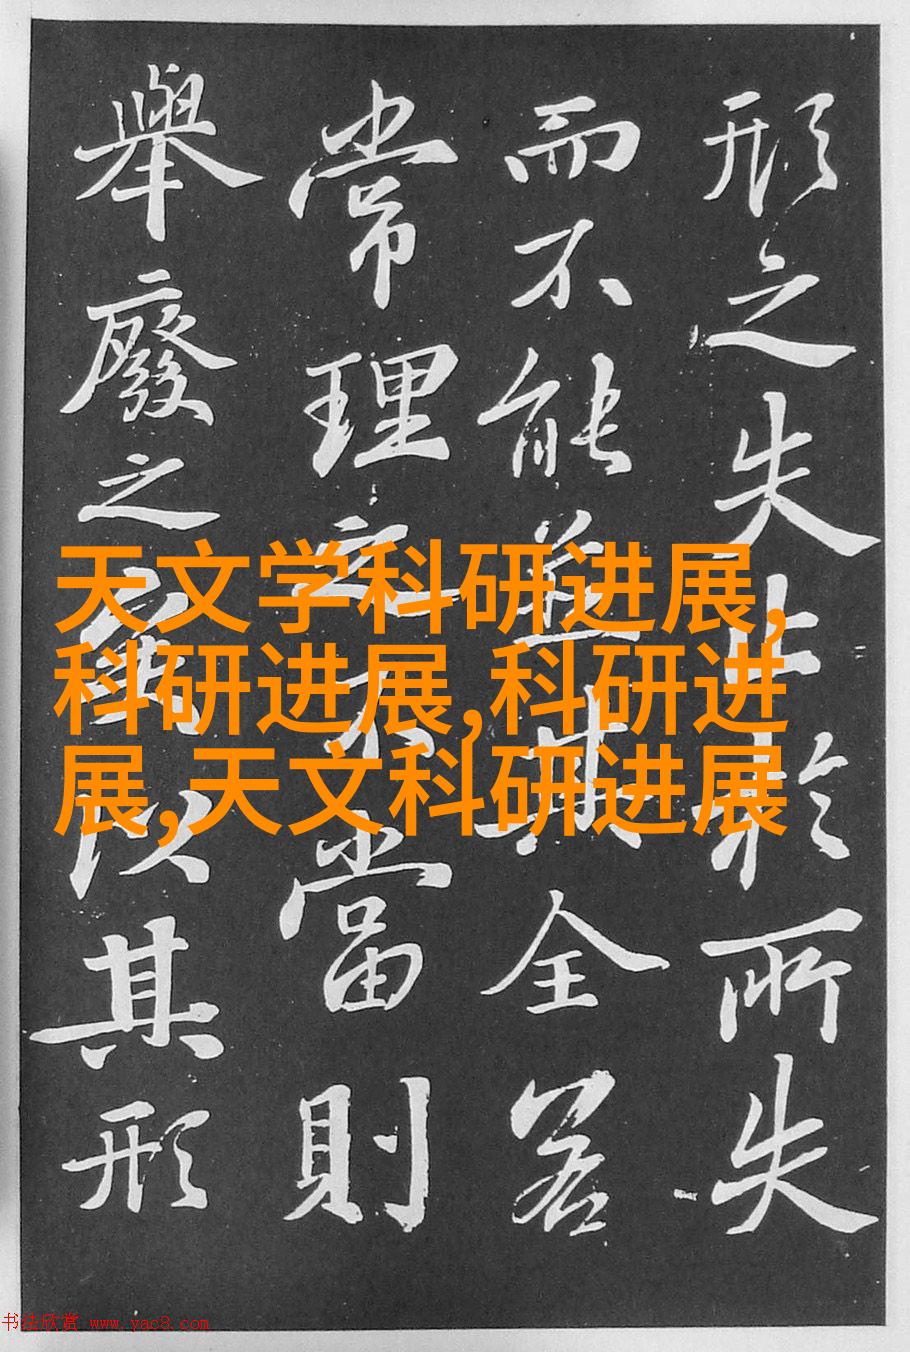 形之失止於所失
而不能其全若
常理之不當則
舉廢之矣以其形
天文学科研进展,
科研进展,科研进
展,天文科研进展
书法欣赏 www.yac8.com